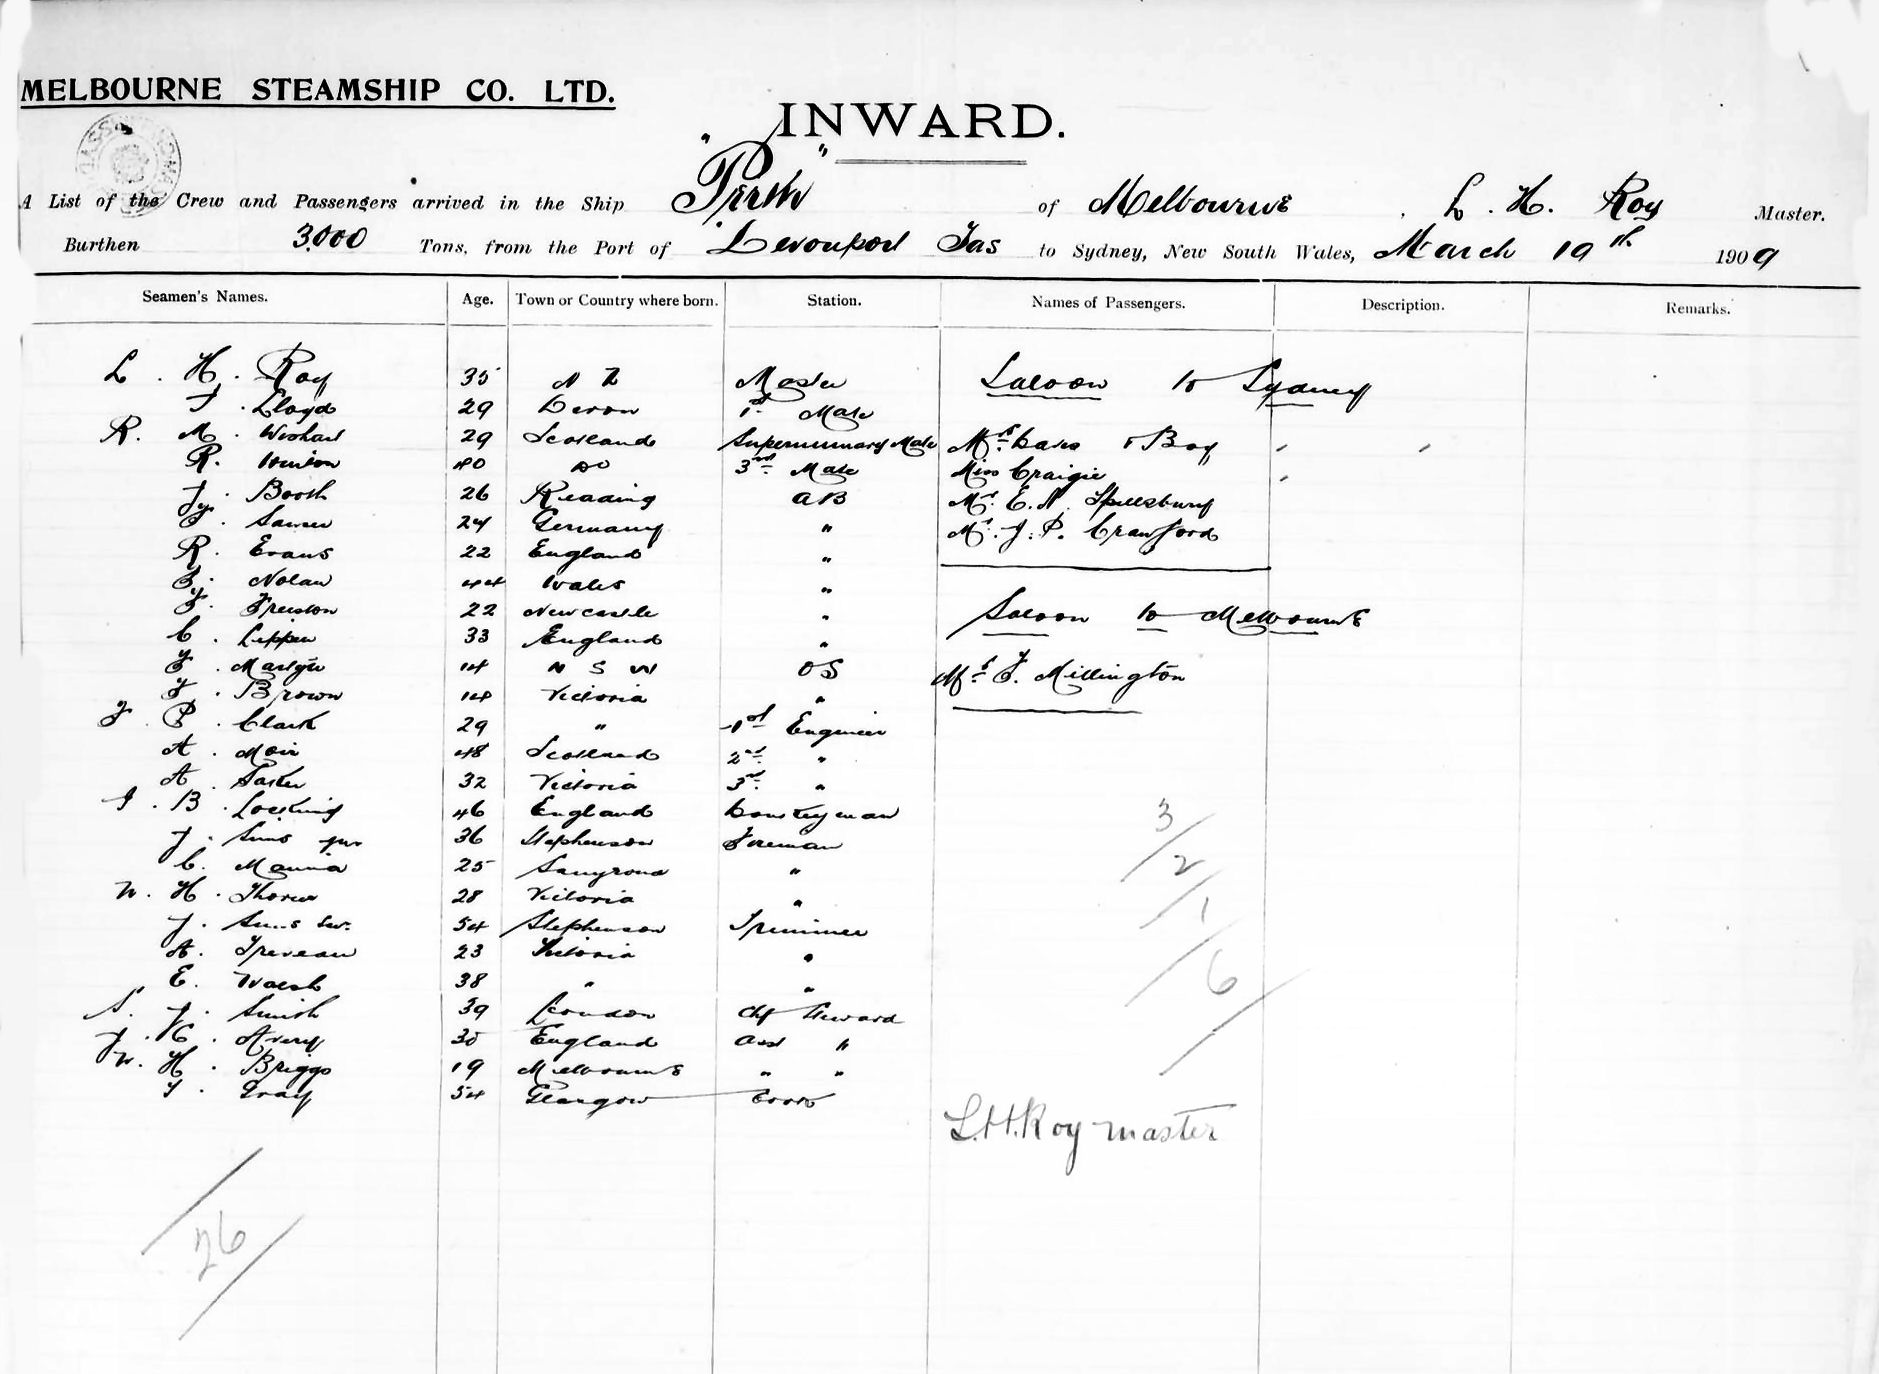 MELBOURNE STEAMSHIP CO. LTD.
INWARD.
A List of the Crew and Passengers arrived in the Ship "Perth" of Melbourne, L. H. Roy Master.
Burthen 3,000 Tons, from the Port of Devonport Tas to Sydney, New South Wales, March 19th 1909
Seamen's Names. Age. Town or Country where born. Station. Names of Passengers. Description. Remarks.
L. H. Roy 35 N Z Master Saloon to Sydney
Lloyd 29 Devon 1st Mate
R. M. Wishart 29 Scotland Supernumary Mate Mrs & Boy
R. 40 Do 3rd Mate Miss Craigie
Booth 26 Reading AB Mr. E. N. Spillsbury
24 Germany " Mr. J. P. Crawford
R. Evans 22 England "
Nolan 44 Wales "
22 Newcastle " Saloon to Melbourne
C. 33 England "
14 N S W OS Mrs F. Millington
F. Brown 14 Victoria "
F. P. Clark 29 " 1st Engineer
A. Moir 48 Scotland 2nd "
A. 32 Victoria 3rd "
B. 46 England Donkeyman 3
J. Sims jnr 36 Stephenson Fireman
C. 25 " 2
W. H. 28 Victoria " 1
J. Sims Snr. 54 Stephenson Trimmer
A. 23 Victoria "
E. Walsh 38 " " 6
S. J. Smith 39 London Chf Steward
J. C. Avery England Asst "
W. H. Briggs 19 Melbourne " "
T. Gray 54 Glasgow Cook
L.H.Roy master
26